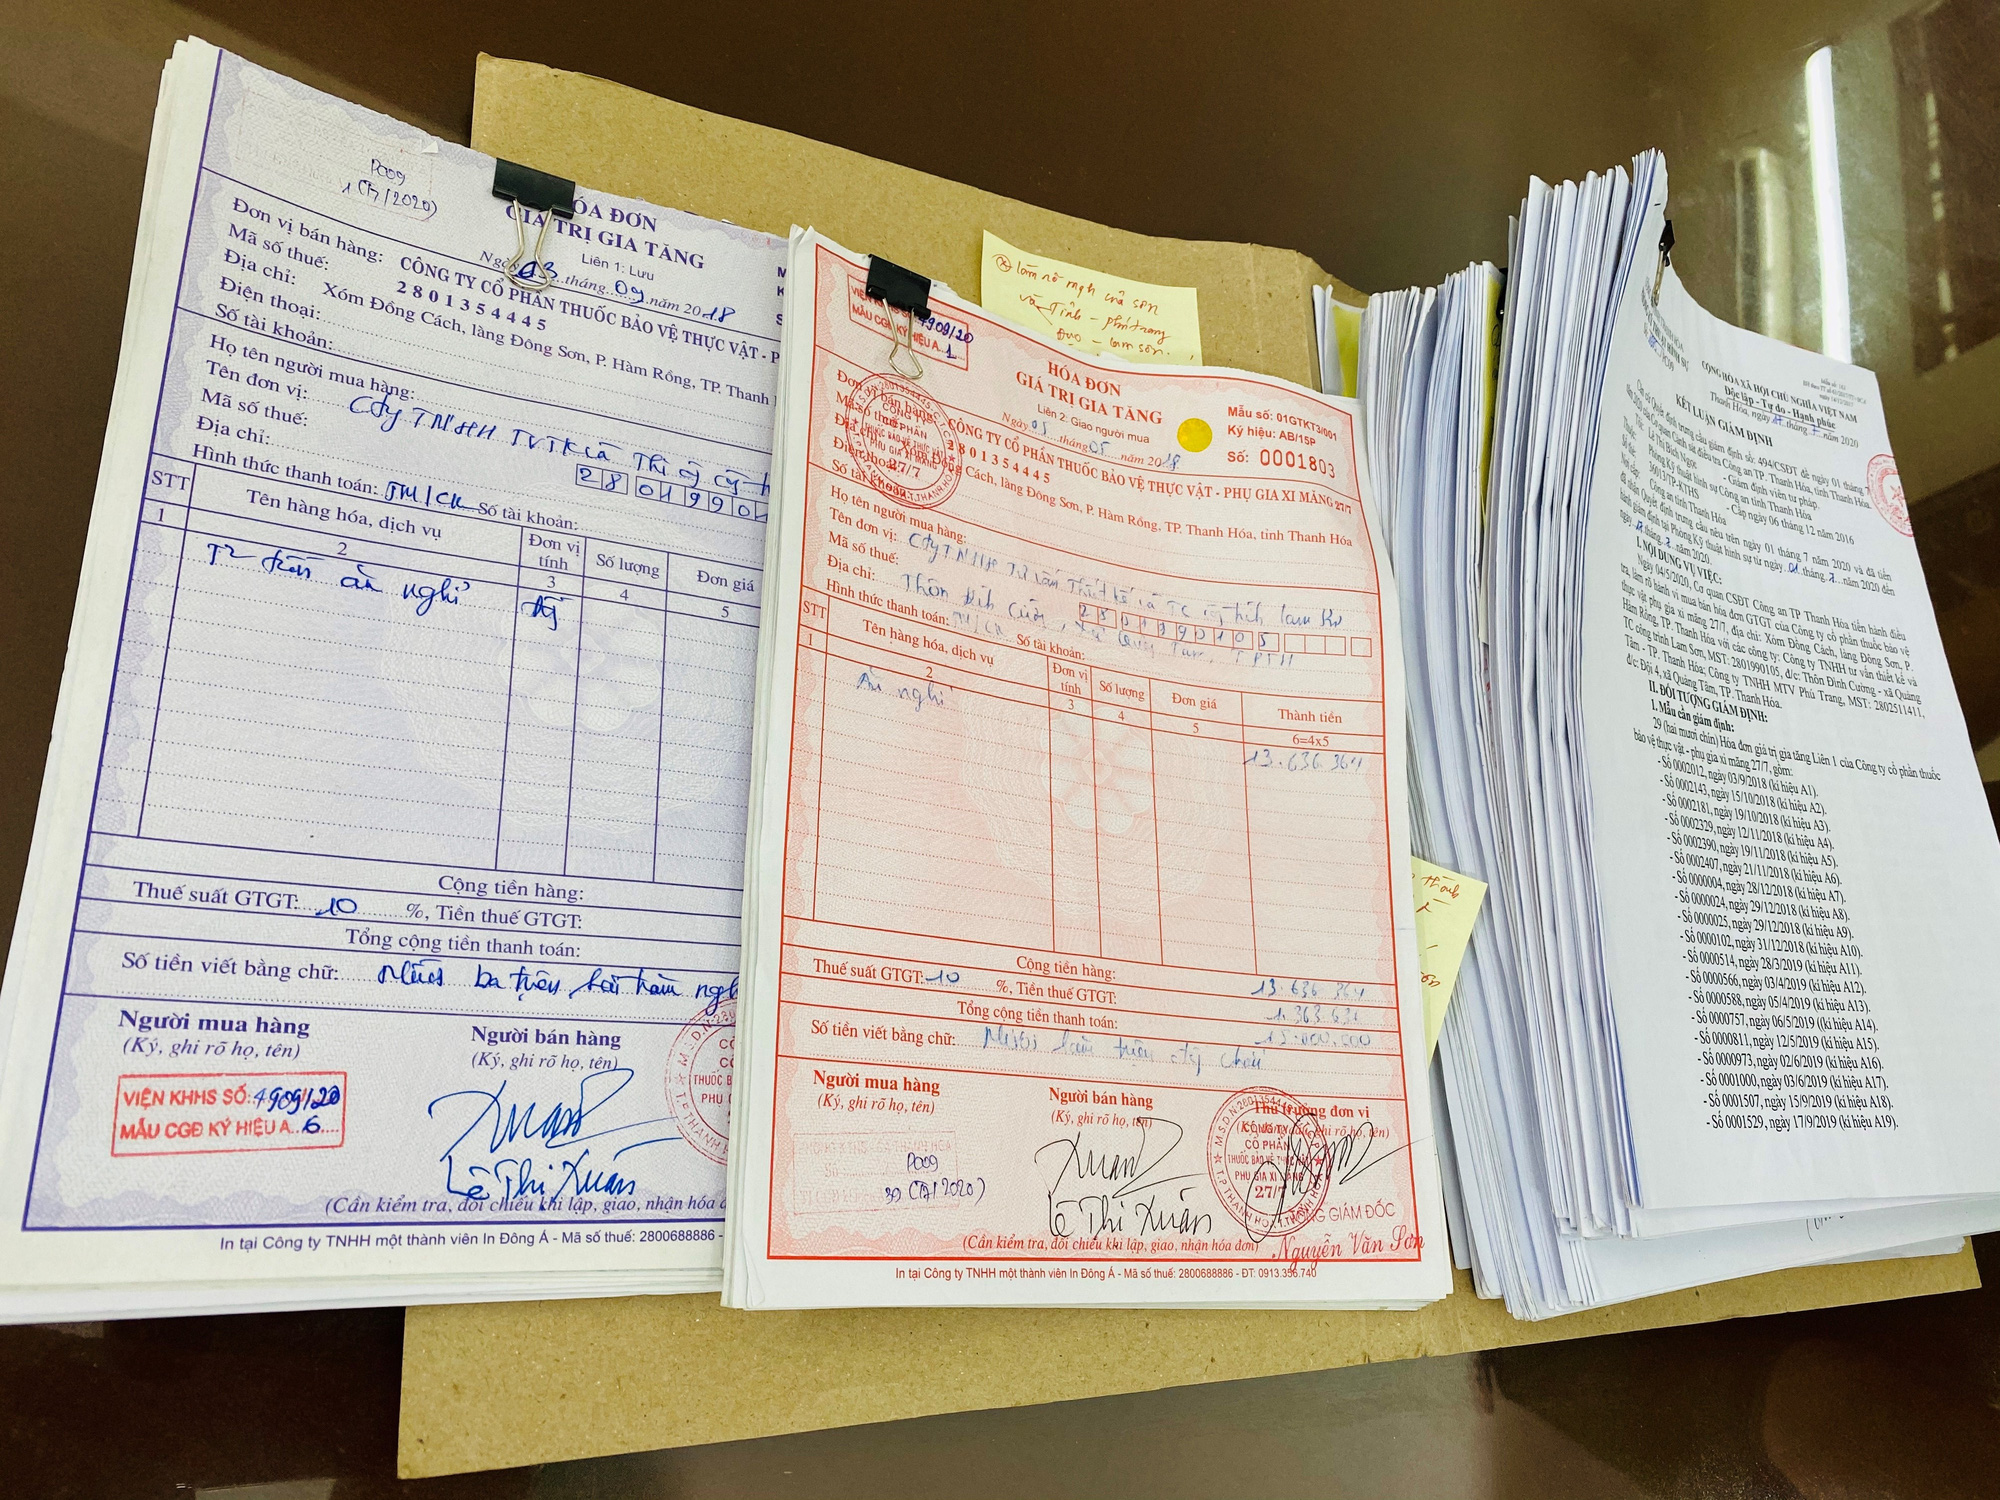 P009
1 (7/2020)
HÓA ĐƠN
GIÁ TRỊ GIA TĂNG
Liên 1: Lưu
Ngày 03 tháng 09 năm 2018
Đơn vị bán hàng: CÔNG TY CỔ PHẦN THUỐC BẢO VỆ THỰC VẬT - P
Mã số thuế: 2801354445
Địa chỉ: Xóm Đồng Cách, làng Đông Sơn, P. Hàm Rồng, TP. Thanh
Điện thoại:
Số tài khoản:
Họ tên người mua hàng:
Tên đơn vị: Cty TNHH TVTK và
Mã số thuế: 2801990
Địa chỉ:
Hình thức thanh toán: TM/CK Số tài khoản:
STT Tên hàng hóa, dịch vụ Đơn vị tính Số lượng Đơn giá
1 2 3 4 5
ăn nghỉ
Cộng tiền hàng:
Thuế suất GTGT: 10 %, Tiền thuế GTGT:
Tổng cộng tiền thanh toán:
Số tiền viết bằng chữ: Mười ba triệu hai trăm
Người mua hàng
(Ký, ghi rõ họ, tên)
Người bán hàng
(Ký, ghi rõ họ, tên)
VIỆN KHHS SỐ: 4909/20
MẪU CGĐ KÝ HIỆU A 6
Lê Thị Xuân
(Cần kiểm tra, đối chiếu khi lập, giao, nhận hóa
In tại Công ty TNHH một thành viên In Đông Á - Mã số thuế: 2800688886 -
và Tỉnh - phú trang
4909/20
MẪU CGĐ KÝ HIỆU A 1
HÓA ĐƠN
GIÁ TRỊ GIA TĂNG
Liên 2: Giao người mua
Ngày 05 tháng 05 năm 2018
Mẫu số: 01GTKT3/001
Ký hiệu: AB/15P
Số: 0001803
CÔNG TY CỔ PHẦN THUỐC BẢO VỆ THỰC VẬT - PHỤ GIA XI MĂNG 27/7
2801354445
Cách, làng Đông Sơn, P. Hàm Rồng, TP. Thanh Hóa, tỉnh Thanh Hóa
Số tài khoản:
Họ tên người mua hàng:
Tên đơn vị: Cty TNHH Tư vấn Thiết kế và TC
Mã số thuế: 2801990105
Địa chỉ: Thôn Đình Cường, xã Quảng Tâm, TPTH
Hình thức thanh toán: TM/CK Số tài khoản:
STT Tên hàng hóa, dịch vụ Đơn vị tính Số lượng Đơn giá Thành tiền
1 2 3 4 5 6=4x5
Ăn nghỉ 13.636.364
Cộng tiền hàng: 13.636.364
Thuế suất GTGT: 10 %, Tiền thuế GTGT: 1.363.636
Tổng cộng tiền thanh toán: 15.000.000
Số tiền viết bằng chữ: Mười lăm triệu đồng chẵn
Người mua hàng
(Ký, ghi rõ họ, tên)
Người bán hàng
(Ký, ghi rõ họ, tên)
Thủ trưởng đơn vị
P009
39 (7/2020)
CÔNG TY
CỔ PHẦN
THUỐC BẢO VỆ THỰC VẬT
PHỤ GIA XI MĂNG
27/7
Lê Thị Xuân
TỔNG GIÁM ĐỐC
Nguyễn Văn Sơn
(Cần kiểm tra, đối chiếu khi lập, giao, nhận hóa đơn)
In tại Công ty TNHH một thành viên In Đông Á - Mã số thuế: 2800688886 - ĐT: 0913.356.740
CỘNG HÒA XÃ HỘI CHỦ NGHĨA VIỆT NAM
Độc lập - Tự do - Hạnh phúc
Thanh Hóa, ngày tháng 7 năm 2020
KẾT LUẬN GIÁM ĐỊNH
Căn cứ Quyết định trưng cầu giám định số: 494/CSĐT đề ngày 01 tháng 7
năm 2020 của Cơ quan Cảnh sát điều tra Công an TP. Thanh Hóa, tỉnh Thanh Hóa.
Tôi: Lê Thị Bích Ngọc - Giám định viên tư pháp.
Phòng Kỹ thuật hình sự Công an tỉnh Thanh Hóa
36013/TP-KTHS - Cấp ngày 06 tháng 12 năm 2016
Công an tỉnh Thanh Hóa
đã nhận Quyết định trưng cầu nêu trên ngày 01 tháng 7 năm 2020 và đã tiến
hành giám định tại Phòng Kỹ thuật hình sự từ ngày 01 tháng 7 năm 2020 đến
ngày tháng 7 năm 2020.
I. NỘI DUNG VỤ VIỆC:
Ngày 04/5/2020, Cơ quan CSĐT Công an TP Thanh Hóa tiến hành điều
tra, làm rõ hành vi mua bán hóa đơn GTGT của Công ty cổ phần thuốc bảo vệ
thực vật phụ gia xi măng 27/7, địa chỉ: Xóm Đồng Cách, làng Đông Sơn, P.
Hàm Rồng, TP. Thanh Hóa với các công ty: Công ty TNHH tư vấn thiết kế và
TC công trình Lam Sơn, MST: 2801990105, đ/c: Thôn Đình Cường - xã Quảng
Tâm - TP. Thanh Hóa; Công ty TNHH MTV Phú Trang, MST: 2802511411,
đ/c: Đội 4, xã Quảng Tâm, TP. Thanh Hóa.
II. ĐỐI TƯỢNG GIÁM ĐỊNH:
1. Mẫu cần giám định:
29 (hai mươi chín) Hóa đơn giá trị gia tăng Liên 1 của Công ty cổ phần thuốc
bảo vệ thực vật - phụ gia xi măng 27/7, gồm:
- Số 0002012, ngày 03/9/2018 (kí hiệu A1).
- Số 0002143, ngày 15/10/2018 (kí hiệu A2).
- Số 0002181, ngày 19/10/2018 (kí hiệu A3).
- Số 0002329, ngày 12/11/2018 (kí hiệu A4).
- Số 0002390, ngày 19/11/2018 (kí hiệu A5).
- Số 0002407, ngày 21/11/2018 (kí hiệu A6).
- Số 0000004, ngày 28/12/2018 (kí hiệu A7).
- Số 0000024, ngày 29/12/2018 (kí hiệu A8).
- Số 0000025, ngày 29/12/2018 (kí hiệu A9).
- Số 0000102, ngày 31/12/2018 (kí hiệu A10).
- Số 0000514, ngày 28/3/2019 (kí hiệu A11).
- Số 0000566, ngày 03/4/2019 (kí hiệu A12).
- Số 0000588, ngày 05/4/2019 (kí hiệu A13).
- Số 0000757, ngày 06/5/2019 (kí hiệu A14).
- Số 0000811, ngày 12/5/2019 (kí hiệu A15).
- Số 0000973, ngày 02/6/2019 (kí hiệu A16).
- Số 0001000, ngày 03/6/2019 (kí hiệu A17).
- Số 0001507, ngày 15/9/2019 (kí hiệu A18).
- Số 0001529, ngày 17/9/2019 (kí hiệu A19).